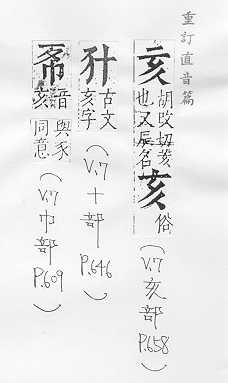 重訂直音篇
亥 胡改切荄也又辰名 亥 俗 (V.7 亥部 P.658)
古文亥字 (V.7 十部 P.646)
音亥 與豕同意 (V.7 巾部 P.609)